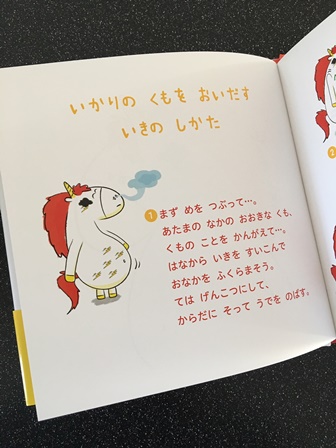 いかりの くもを おいだす
いきの しかた
1 まず めを つぶって…。
あたまの なかの おおきな くも、
くもの ことを かんがえて…。
はなから いきを すいこんで
おなかを ふくらまそう。
ては げんこつにして、
からだに そって うでを のばす。
2